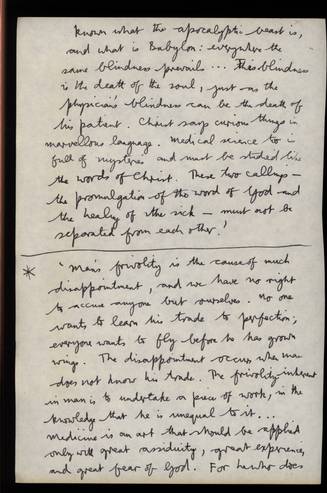 known what the apocalyptic beast is,
and what is Babylon: everywhere the
same blindness prevails... This blindness
is the death of the soul, just as the
physician's blindness can be the death of
his patient. Christ says curious things in
marvellous language. Medical science too is
full of mysteries and must be studied like
the words of Christ. These two callings —
the promulgation of the word of God and
the healing of the sick — must not be
separated from each other.'
* 'Man's frivolity is the cause of much
disappointment, and we have no right
to accuse anyone but ourselves. No one
wants to learn his trade to perfection;
everyone wants to fly before he has grown
wings. The disappointment occurs when man
does not know his trade. The frivolity inherent
in man is to undertake a piece of work, in the
knowledge that he is unequal to it...
Medicine is an art that should be applied
only with great assiduity, great experience
and great fear of God. For he who does